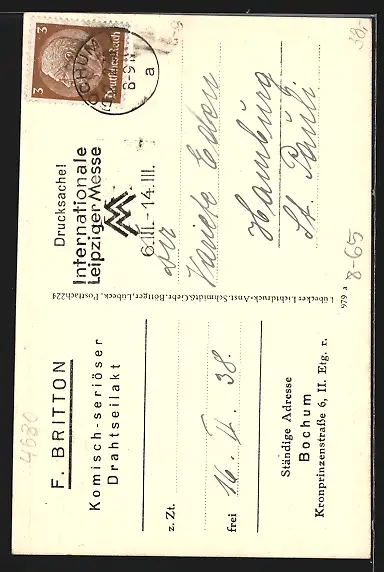 F. BRITTON
Komisch-seriöser
Drahtseilakt
z. Zt.
frei 16. II. 38.
Ständige Adresse
Bochum
Kronprinzenstraße 6, II. Etg. r.
Lübecker Lichtdruck-Anst. Schmidt & Gebr. Böttger, Lübeck, Postfach 224
979 a
Drucksache!
Internationale
Leipziger Messe
6.III.-14.III.
BOCHUM
8-9
a
3
3
Deutsches Reich
Dir
Variete Eden
Hamburg
St. Pauli
8-65
4680
38,-